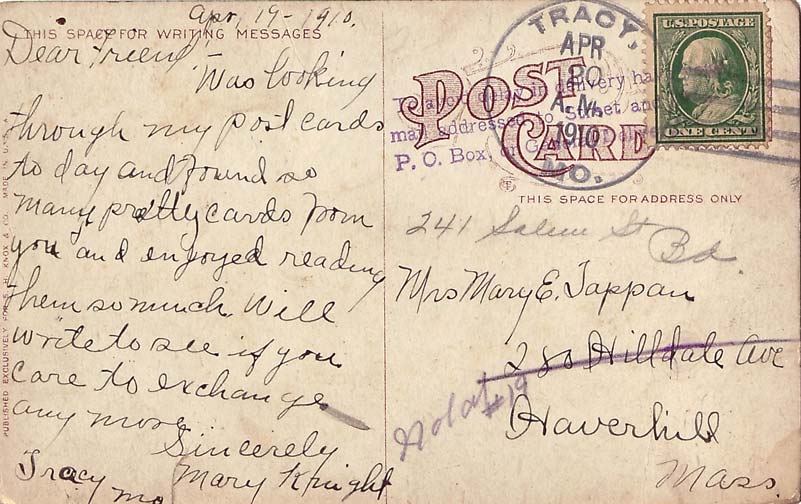 Apr, 19 - 1910.
THIS SPACE FOR WRITING MESSAGES
Dear Friend
Was looking
through my post cards
to day and found so
many pretty cards from
you and enjoyed reading
them so much. Will
write to see if you
care to exchange
any more
Sincerely
Mary Knight
Tracy
Mo
PUBLISHED EXCLUSIVELY FOR S. H. KNOX & CO. MADE IN
POST
CARD
TRACY,
APR
20
A.M.
1910
MO.
U.S. POSTAGE
ONE CENT
delay in delivery
mail addressed to Street and
P. O. Box, or
THIS SPACE FOR ADDRESS ONLY
241 Salem St
Bd.
Mrs Mary E. Tappan
280 Hilldale Ave
Not at
#19
Haverhill
Mass.